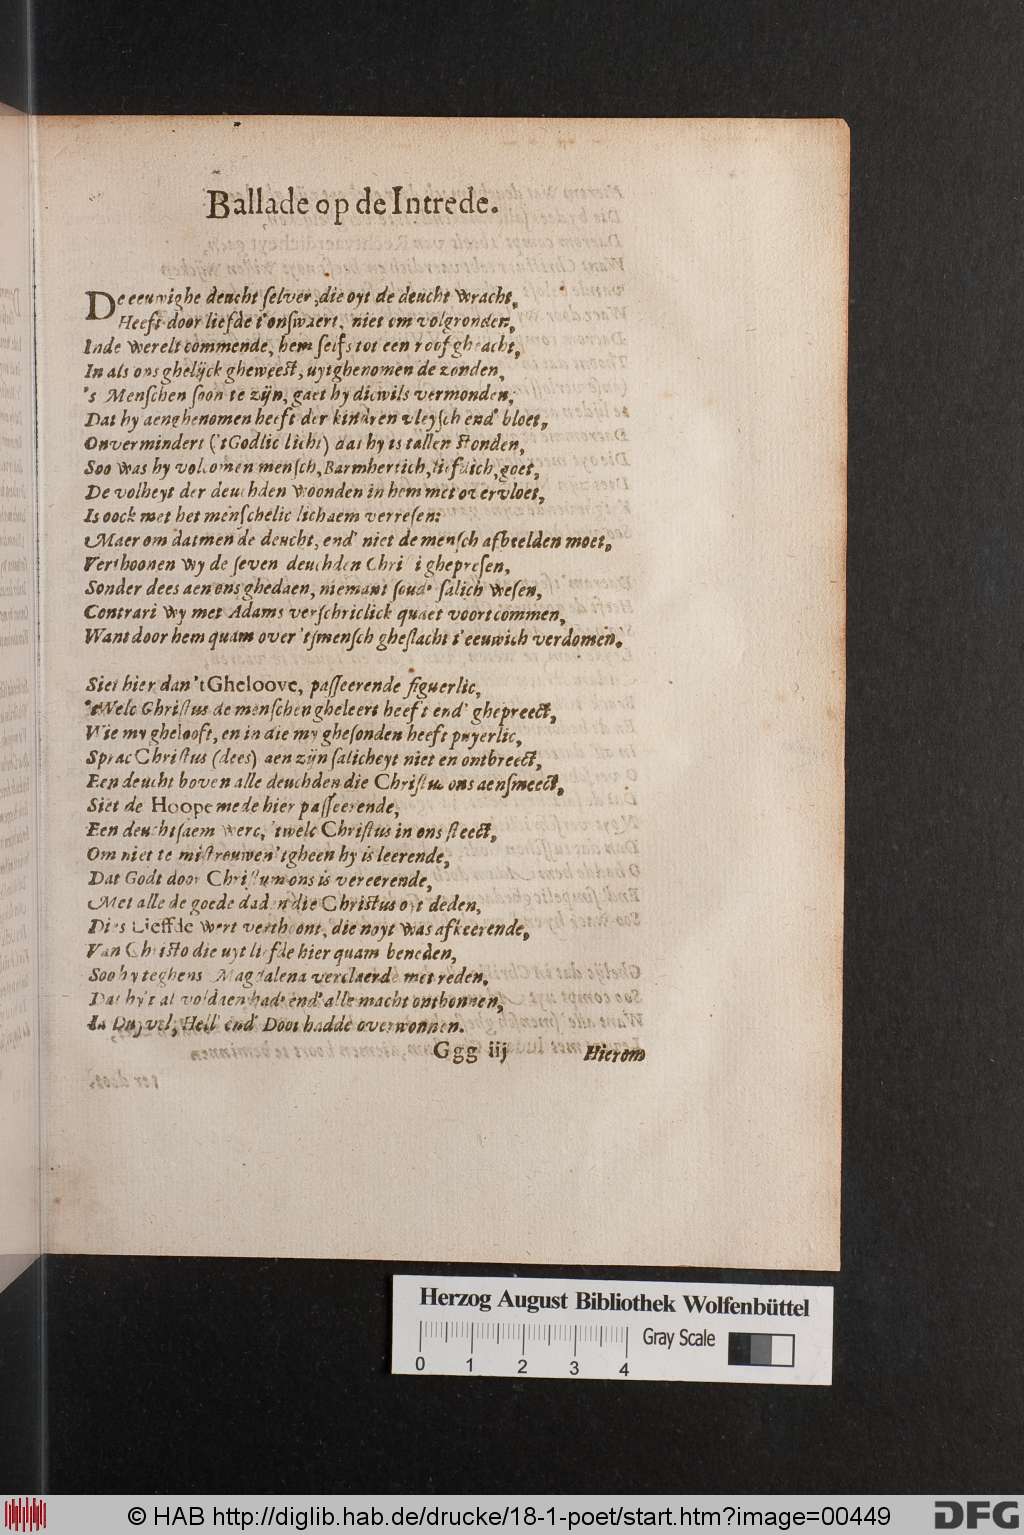 Ballade op de Intrede.
De eeuwighe deucht ſelver, die oyt de deucht wracht,
Heeft door liefde t'onſwaert, niet om volgronden,
Inde werelt commende, hem ſelfs tot een roof gheacht,
In als ons ghelijck gheweeſt, uytghenomen de zonden,
's Menſchen ſoon te zijn, gaet hy dicwils vermonden,
Dat hy aenghenomen heeft der kindren vleyſch end' bloet,
Onvermindert ('tGodlic licht) dat hy is tallen ſtonden,
Soo was hy volcomen menſch, Barmhertich, liefdich, goet,
De volheyt der deuchden woonden in hem met overvloet,
Is oock met het menſchelic lichaem verreſen:
Maer om datmen de deucht, end' niet de menſch afbeelden moet,
Verthoonen wy de ſeven deuchden Chriſti ghepreſen,
Sonder dees aen ons ghedaen, niemant ſoude ſalich weſen,
Contrari wy met Adams verſchriclick quaet voortcommen,
Want door hem quam over 'tſmenſch gheſlacht t'eeuwich verdomen.
Siet hier dan 'tGheloove, paſſeerende figuerlic,
'tWelc Chriſtus de menſchen gheleert heeft end' ghepreect,
Wie my ghelooft, en in die my gheſonden heeft puyerlic,
Sprac Chriſtus (dees) aen zijn ſalicheyt niet en ontbreect,
Een deucht boven alle deuchden die Chriſtus ons aenſmeect,
Siet de Hoope mede hier paſſeerende,
Een deuchtſaem werc, 'twelc Chriſtus in ons ſteect,
Om niet te miſtrouwen 'tgheen hy is leerende,
Dat Godt door Chriſtum ons is vereerende,
Met alle de goede daden die Chriſtus oyt deden,
Dies Lieffde wert verthoont, die noyt was afkeerende,
Van Chriſto die uyt liefde hier quam beneden,
Soo hy teghens Magdalena verclaerde met reden,
Dat hy't al voldaen hadt end' alle macht onthonnen,
En Duyvel, Hell' end' Doot hadde overwonnen.
Ggg iij Hierom
Herzog August Bibliothek Wolfenbüttel
Gray Scale
0 1 2 3 4
© HAB http://diglib.hab.de/drucke/18-1-poet/start.htm?image=00449
DFG